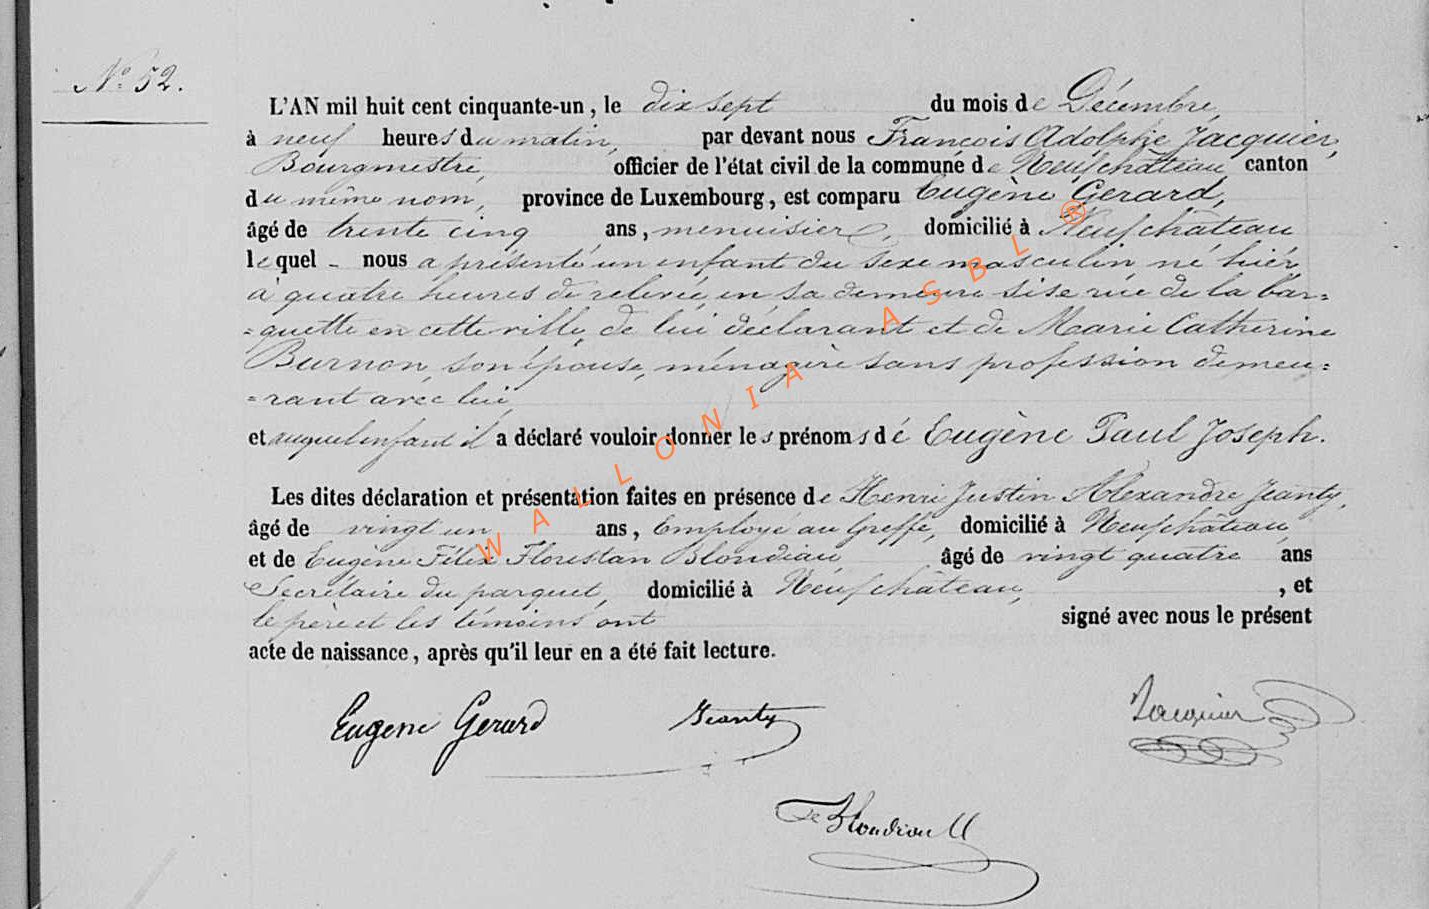 N° 52.
L'AN mil huit cent cinquante-un, le dix sept du mois de Décembre,
à neuf heures du matin, par devant nous François Adolphe Jacquier,
Bourgmestre, officier de l'état civil de la commune de Neufchâteau, canton
du même nom, province de Luxembourg, est comparu Eugène Gerard,
âgé de trente cinq ans, menuisier, domicilié à Neufchâteau
lequel - nous a présenté un enfant du sexe masculin né hier,
à quatre heures de relevée, en sa demeure sise rue de la bar=
=quette en cette ville, de lui déclarant et de Marie Catherine
Burnon, son épouse, ménagère sans profession demeu=
=rant avec lui,
et auquel enfant il a déclaré vouloir donner les prénoms dé Eugène Paul Joseph.
Les dites déclaration et présentation faites en présence de Henri Justin Alexandre Jeanty,
âgé de vingt un ans, Employé au Greffe, domicilié à Neufchâteau,
et de Eugène Félix Florestan Blondeau âgé de vingt quatre ans
Secrétaire du parquet, domicilié à Neufchâteau, , et
le père et les témoins ont signé avec nous le présent
acte de naissance, après qu'il leur en a été fait lecture.
Eugene Gerard Jeanty Jacquier
Blondeau
WALLONIA ASBL ®